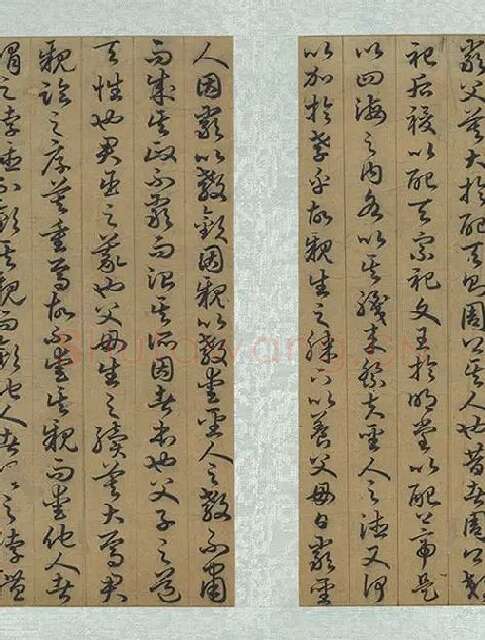 嚴父莫大於配天則周公其人也昔者周公郊
祀后稷以配天宗祀文王於明堂以配上帝是
以四海之內各以其職來祭夫聖人之德又何
以加於孝乎故親生之膝下以養父母日嚴聖
人因嚴以教敬因親以教愛聖人之教不肅
而成其政不嚴而治其所因者本也父子之道
天性也君臣之義也父母生之續莫大焉君
親臨之厚莫重焉故不愛其親而愛他人者
謂之悖德不敬其親而敬他人者謂之悖禮